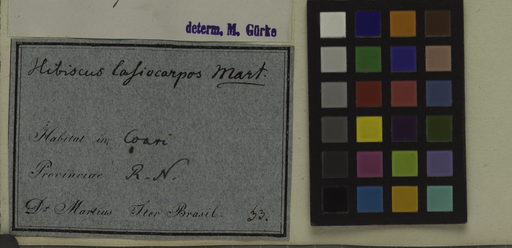 determ. M. Gürke
Hibiscus lasiocarpos Mart.
Habitat in Coari
Provinciae R-N.
Dr. Martius Iter Brasil. 33.